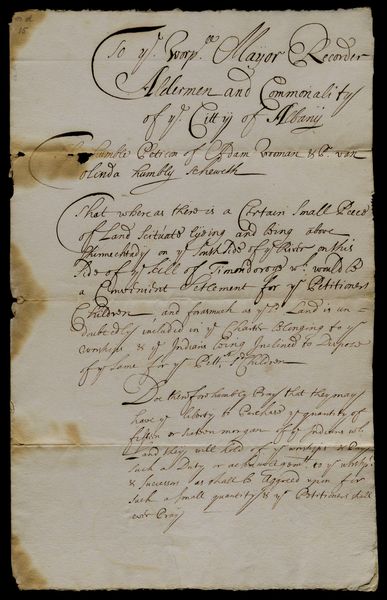 To yͤ Worpˡˡ Mayor Recorder
Aldermen and Commonality
of yͤ Citty of Albany
humble Peticon of Adam Vroman & Pʳ van
olinda humbly Scheweth
That where as there is a Certain Small Piece
of Land Scituate lyeing and being above
on yͤ South Side of yͤ River on this
Side of yͤ kill of wʰ would be
a Conveinient setlement for yͤ Petitioners
Children, and forasmuch as yͤ Sᵈ Land is un=
doubtedly included in yͤ Charter Belonging to yͤ
worships & yͤ Indians being Inclined to Dispose
of yͤ same for yͤ Petitʳˢ Children
Doe therefore humbly Pray that they may
have yͤ liberty to Purchase yͤ quantity of
fifteen or sixteen morgan of yͤ Indians wh
Land they will hold of yͤ worships & Pay
Such a Duty or acknowledgemᵗ to yͤ worships
& Successors as shall be Agreed upon for
Such a Small quantity & yͤ Petitioners shall
ever Pray